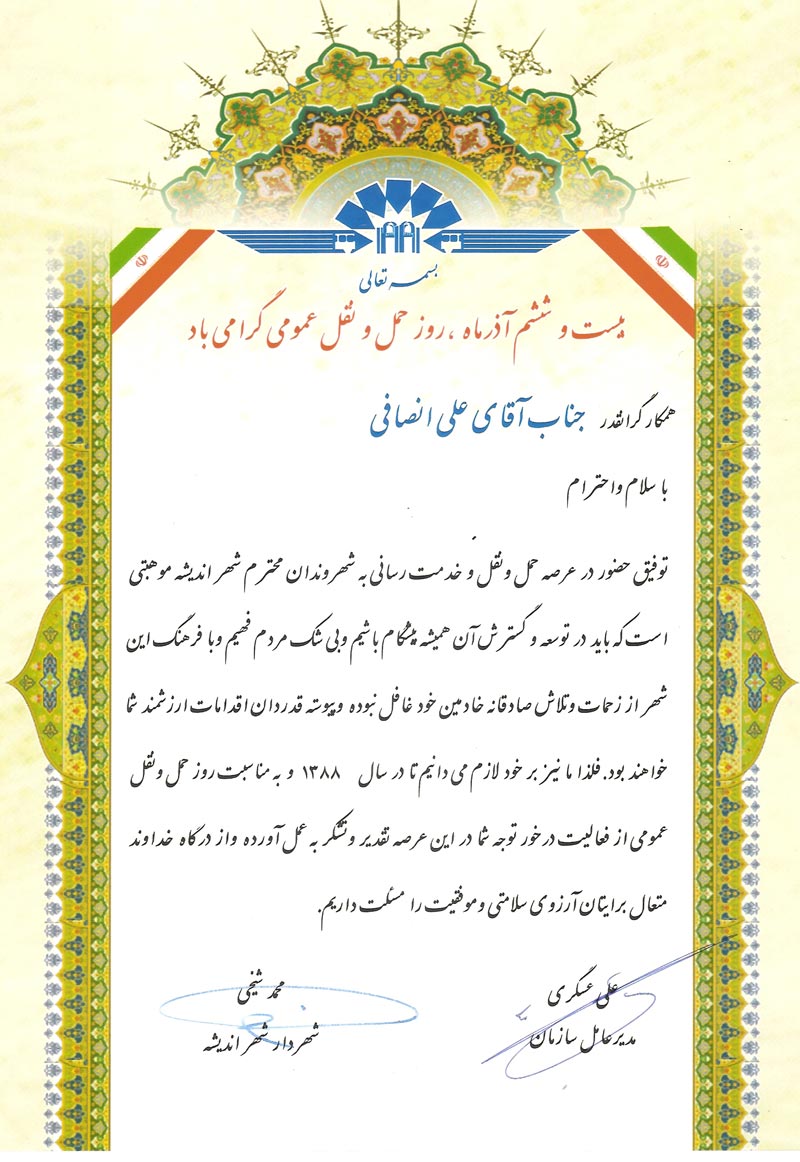 بسمه تعالی
بیست و ششم آذرماه ، روز حمل و نقل عمومی گرامی باد
همکار گرانقدر جناب آقای علی انصافی
با سلام و احترام
توفیق حضور در عرصه حمل و نقل و خدمت رسانی به شهروندان محترم شهر اندیشه موهبتی
است که باید در توسعه و گسترش آن همیشه پیشگام باشیم وبی شک مردم فهیم وبا فرهنگ این
شهر از زحمات وتلاش صادقانه خادمین خود غافل نبوده وپیوسته قدردان اقدامات ارزشمند شما
خواهند بود. فلذا ما نیز بر خود لازم می دانیم تا در سال ۱۳۸۸ و به مناسبت روز حمل ونقل
عمومی از فعالیت درخور توجه شما در این عرصه تقدیر وتشکر به عمل آورده واز درگاه خداوند
متعال برایتان آرزوی سلامتی وموفقیت را مسئلت داریم.
علی عسگری
مدیرعامل سازمان
محمد شیخی
شهردار شهر اندیشه